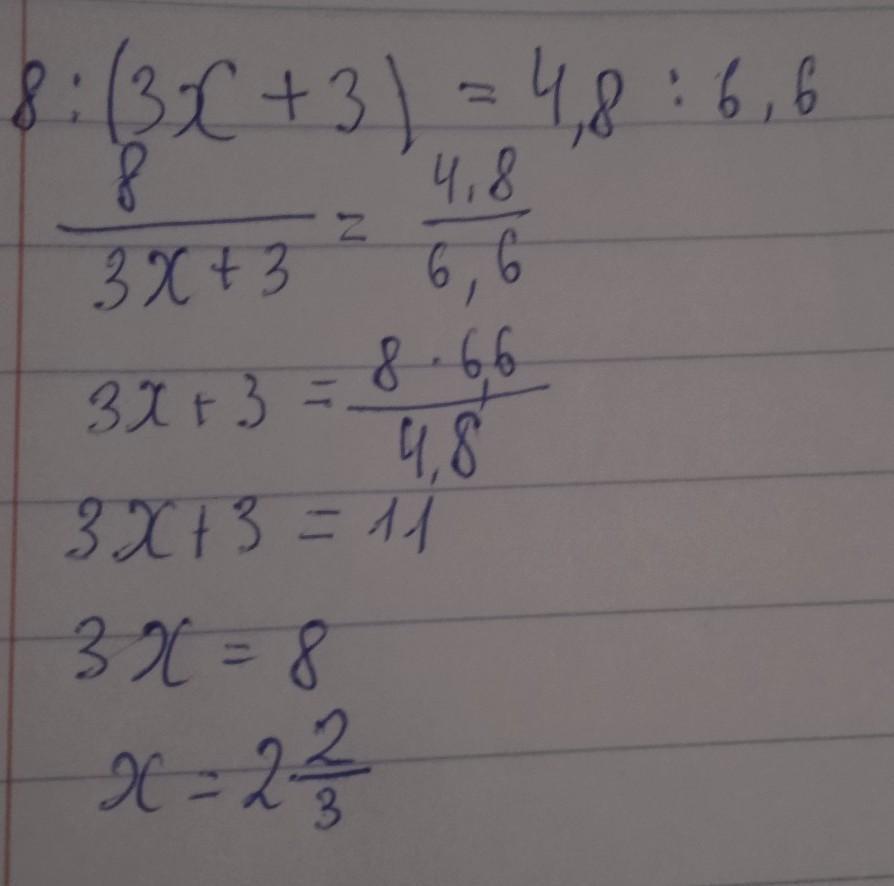 8 : (3x + 3) = 4,8 : 6,6
8/(3x + 3) = 4,8/6,6
3x + 3 = (8 · 6,6)/4,8
3x + 3 = 11
3x = 8
x = 2 2/3